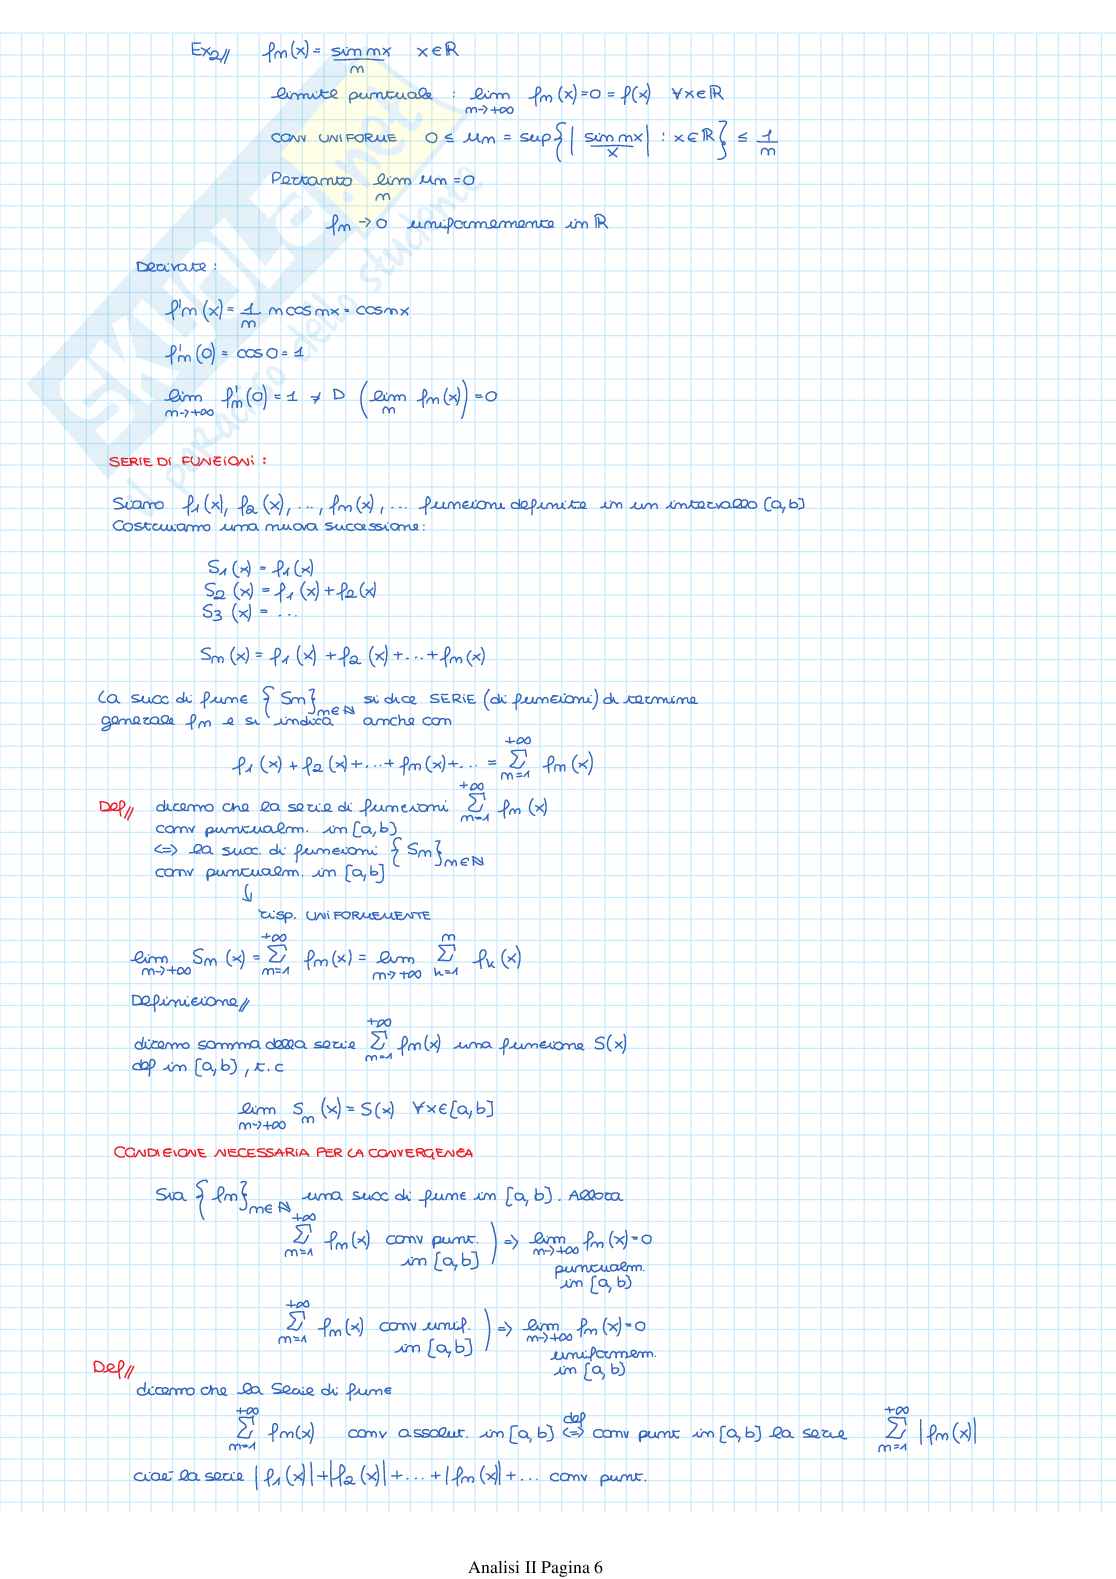 Ex2// fn(x) = sin nx / n x ∈ ℝ
limite puntuale : lim n→+∞ fn(x) = 0 = f(x) ∀x∈ℝ
CONV UNIFORME 0 ≤ Mn = sup{ | sin nx / x | : x∈ℝ } ≤ 1/n
Pertanto lim n Mn = 0
fn → 0 uniformemente in ℝ
Derivate :
f'n(x) = 1/n n cos nx = cos nx
f'n(0) = cos 0 = 1
lim n→+∞ f'n(0) = 1 ≠ D ( lim n fn(x) ) = 0
SERIE DI FUNZIONI :
Siano f1(x), f2(x), ..., fn(x), ... funzioni definite in un intervallo [a,b]
Costruiamo una nuova successione:
S1(x) = f1(x)
S2(x) = f1(x) + f2(x)
S3(x) = ...
Sn(x) = f1(x) + f2(x) + ... + fn(x)
La succ di funz {Sn}n∈ℕ si dice SERIE (di funzioni) di termine
generale fn e si indica anche con
f1(x) + f2(x) + ... + fn(x) + ... = +∞ Σ n=1 fn(x)
Def// diremo che la serie di funzioni +∞ Σ n=1 fn(x)
conv puntualm. in [a,b]
<=> la succ. di funzioni {Sn}n∈ℕ
conv puntualm. in [a,b]
↳
risp. UNIFORMEMENTE
lim n→+∞ Sn(x) = +∞ Σ n=1 fn(x) = lim n→+∞ n Σ k=1 fk(x)
Definizione//
diremo somma della serie +∞ Σ n=1 fn(x) una funzione S(x)
def in [a,b], t.c
lim n→+∞ Sn(x) = S(x) ∀x∈[a,b]
CONDIZIONE NECESSARIA PER LA CONVERGENZA
Sia {fn}n∈ℕ una succ di funz in [a,b]. Allora
+∞ Σ n=1 fn(x) conv punt. ) => lim n→+∞ fn(x) = 0
in [a,b] puntualm.
in [a,b]
+∞ Σ n=1 fn(x) conv unif. ) => lim n→+∞ fn(x) = 0
in [a,b] uniformem.
in [a,b]
Def//
diremo che la serie di funz
+∞ Σ n=1 fn(x) conv assolut. in [a,b] <=> def conv punt in [a,b] la serie +∞ Σ n=1 |fn(x)|
cioè la serie |f1(x)| + |f2(x)| + ... + |fn(x)| + ... conv punt.
SKUOLA.net
il paradiso dello studente
Analisi II Pagina 6